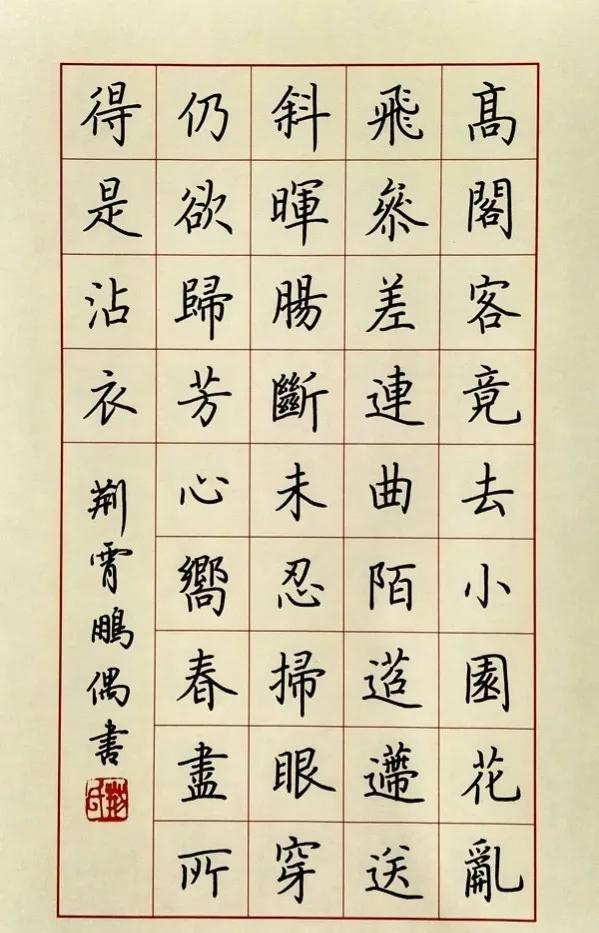 高閣客竟去小園花亂
飛叅差連曲陌迢遰送
斜暉腸斷未忍掃眼穿
仍欲歸芳心嚮春盡所
得是沾衣
荆霄鵬偶書